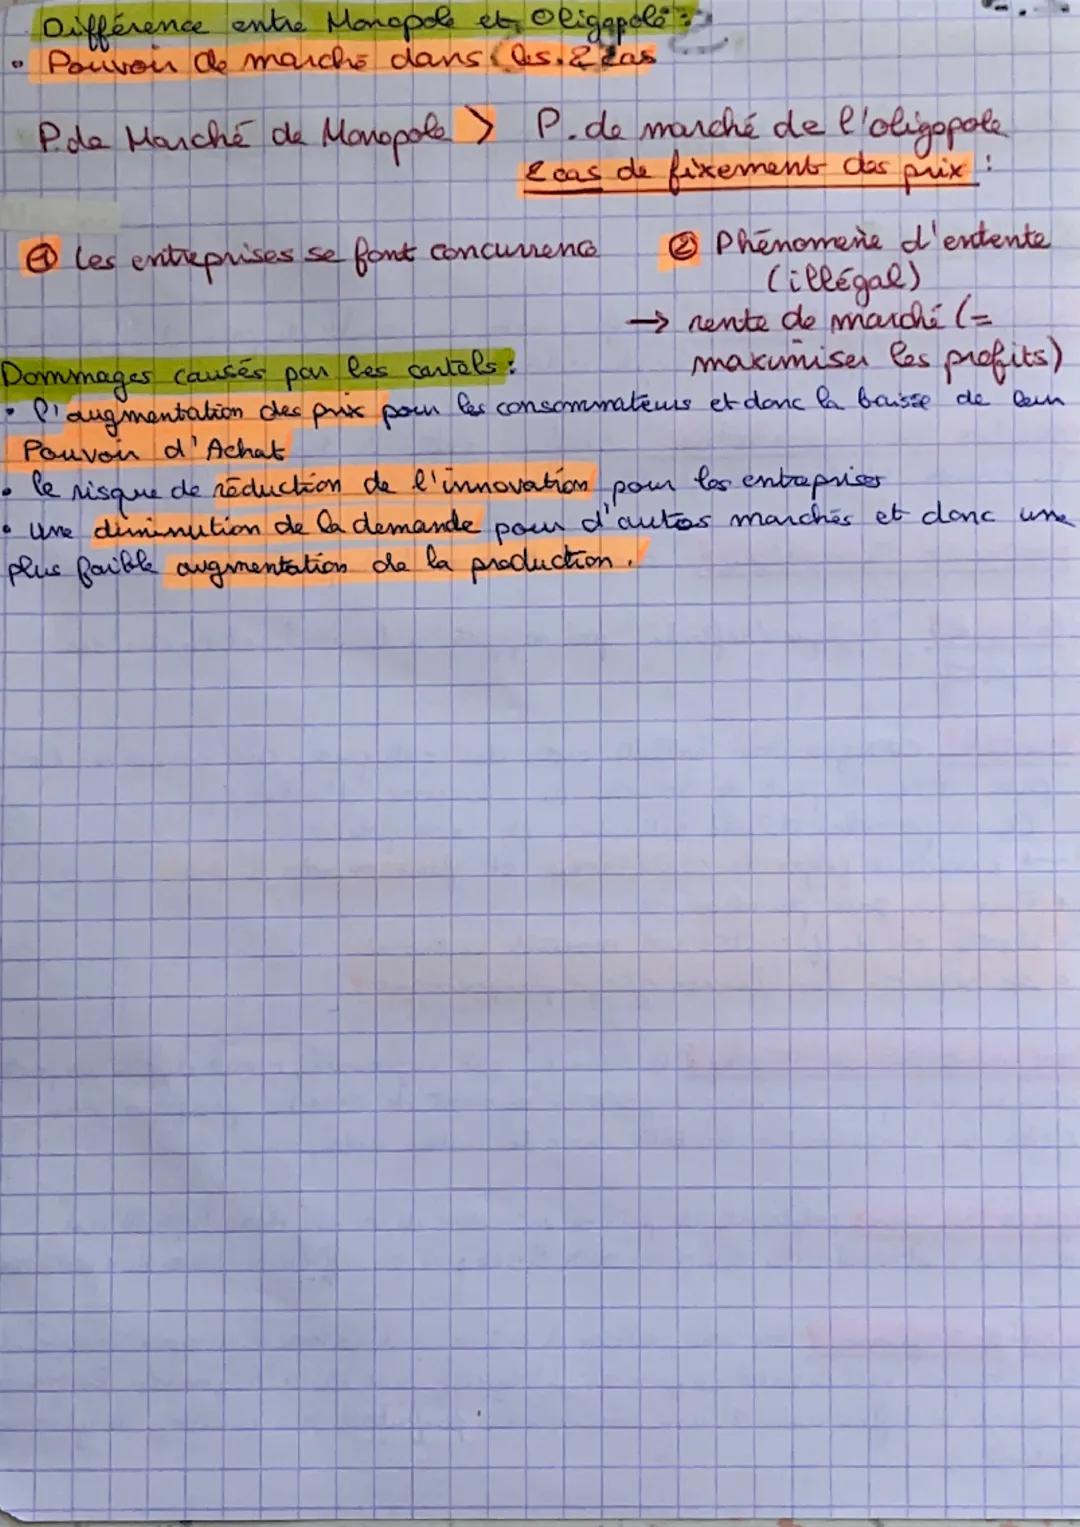 Différence entre Monopole et Oligopole :
• Pouvoir de marché dans les 2 cas
P. de Marché de Monopole > P. de marché de l'oligopole
2 cas de fixement des prix :
① Les entreprises se font concurrence
② Phénomène d'entente
(illégal)
→ rente de marché (=
maximiser les profits)
Dommages causés par les cartels :
• l'augmentation des prix pour les consommateurs et donc la baisse de leur
Pouvoir d'Achat
• le risque de réduction de l'innovation pour les entreprises
• une diminution de la demande pour d'autres marchés et donc une
plus faible augmentation de la production.